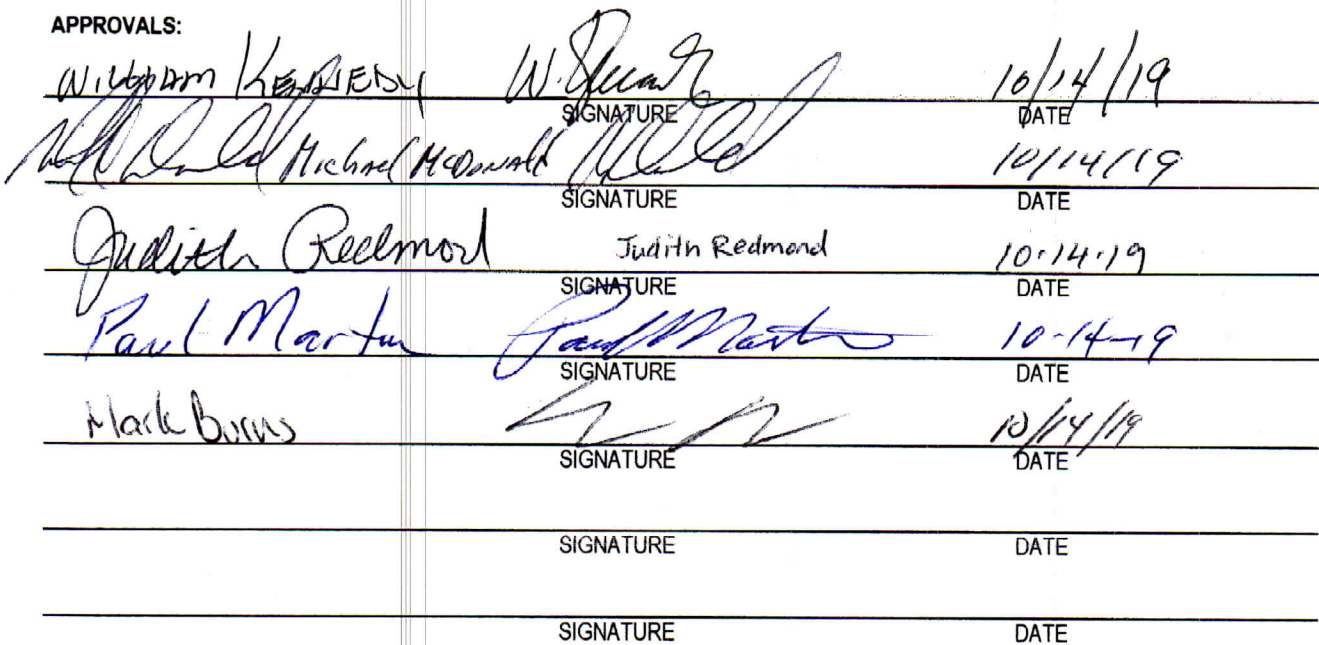 APPROVALS:
William Kennedy 10/14/19
SIGNATURE DATE
Michael McDonald 10/14/19
SIGNATURE DATE
Judith Redmond Judith Redmond 10·14·19
SIGNATURE DATE
Paul Martin Paul Martin 10-14-19
SIGNATURE DATE
Mark Burns 10/14/19
SIGNATURE DATE
SIGNATURE DATE
SIGNATURE DATE